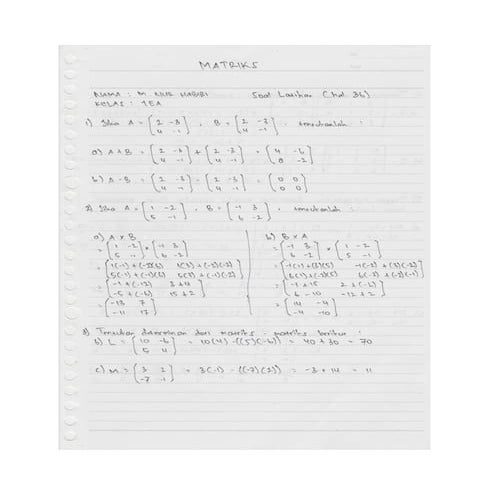 MATRIKS
NAMA : M NUR HABIBI Soal Latihan (hal 36)
KELAS : 1EA
1) Jika A = [2 -3 / 4 -1] , B = [2 -3 / 4 -1] , tentukanlah :
a) A + B = [2 -3 / 4 -1] + [2 -3 / 4 -1] = [4 -6 / 8 -2]
b) A - B = [2 -3 / 4 -1] - [2 -3 / 4 -1] = [0 0 / 0 0]
2) Jika A = [1 -2 / 5 -1] , B = [-1 3 / 6 -2] , tentukanlah :
a) A x B
= [1 -2 / 5 -1] x [-1 3 / 6 -2]
= [1(-1)+(-2)(6) 1(3)+(-2)(-2) / 5(-1)+(-1)(6) 5(3)+(-1)(-2)]
= [-1+(-12) 3+4 / -5+(-6) 15+2]
= [-13 7 / -11 17]
b) B x A
= [-1 3 / 6 -2] x [1 -2 / 5 -1]
= [-1(1)+(3)(5) -1(-2)+(3)(-1) / 6(1)+(-2)(5) 6(-2)+(-2)(-1)]
= [-1+15 2+(-6) / 6-10 -12+2]
= [14 -4 / -4 -10]
3) Tentukan determinan dari matriks - matriks berikut :
b) L = [10 -6 / 5 4] = 10(4) - ((5)(-6)) = 40 + 30 = 70
c) M = [3 2 / -7 -1] = 3(-1) - ((-7)(2)) = -3 + 14 = 11